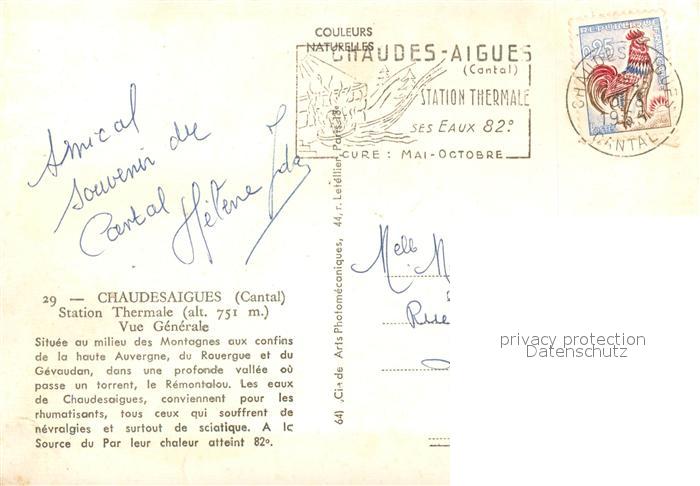 COULEURS
NATURELLES
CHAUDES-AIGUES
(Cantal)
STATION THERMALE
SES EAUX 82°
CURE : MAI-OCTOBRE
0,25
CANTAL
Amical
souvenir du
Cantal Hélène Ida
29 — CHAUDESAIGUES (Cantal)
Station Thermale (alt. 751 m.)
Vue Générale
Située au milieu des Montagnes aux confins
de la haute Auvergne, du Rouergue et du
Gévaudan, dans une profonde vallée où
passe un torrent, le Rémontalou. Les eaux
de Chaudesaigues, conviennent pour les
rhumatisants, tous ceux qui souffrent de
névralgies et surtout de sciatique. A la
Source du Par leur chaleur atteint 82°.
64) Cie de Arts Photomécaniques, 44, r. Letellier, Paris 15e
Melle M
Rue
privacy protection
Datenschutz